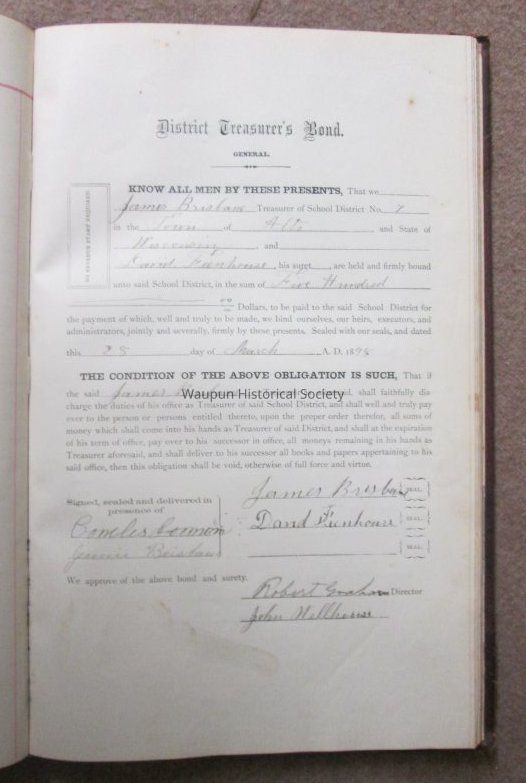 District Treasurer's Bond.
GENERAL.
KNOW ALL MEN BY THESE PRESENTS, That we
James Brisbane Treasurer of School District No. 7
in the Town of Alto and State of
Wisconsin, and
David Feenhouse, his suret are held and firmly bound
unto said School District, in the sum of Five Hundred
00 Dollars, to be paid to the said School District for
the payment of which, well and truly to be made, we bind ourselves, our heirs, executors, and
administrators, jointly and severally, firmly by these presents. Sealed with our seals, and dated
this 28 day of March A. D. 189
THE CONDITION OF THE ABOVE OBLIGATION IS SUCH, That if
the said James shall faithfully dis
charge the duties of his office as Treasurer of said School District, and shall well and truly pay
over to the person or persons entitled thereto, upon the proper order therefor, all sums of
money which shall come into his hands as Treasurer of said District, and shall at the expiration
of his term of office, pay over to his successor in office, all moneys remaining in his hands as
Treasurer aforesaid, and shall deliver to his successor all books and papers appertaining to his
said office, then this obligation shall be void, otherwise of full force and virtue.
Waupun Historical Society
Signed, sealed and delivered in
presence of
Jennie Brisbane
James Brisbane SEAL
David Feenhouse SEAL
SEAL
We approve of the above bond and surety.
Robert Graham Director
John